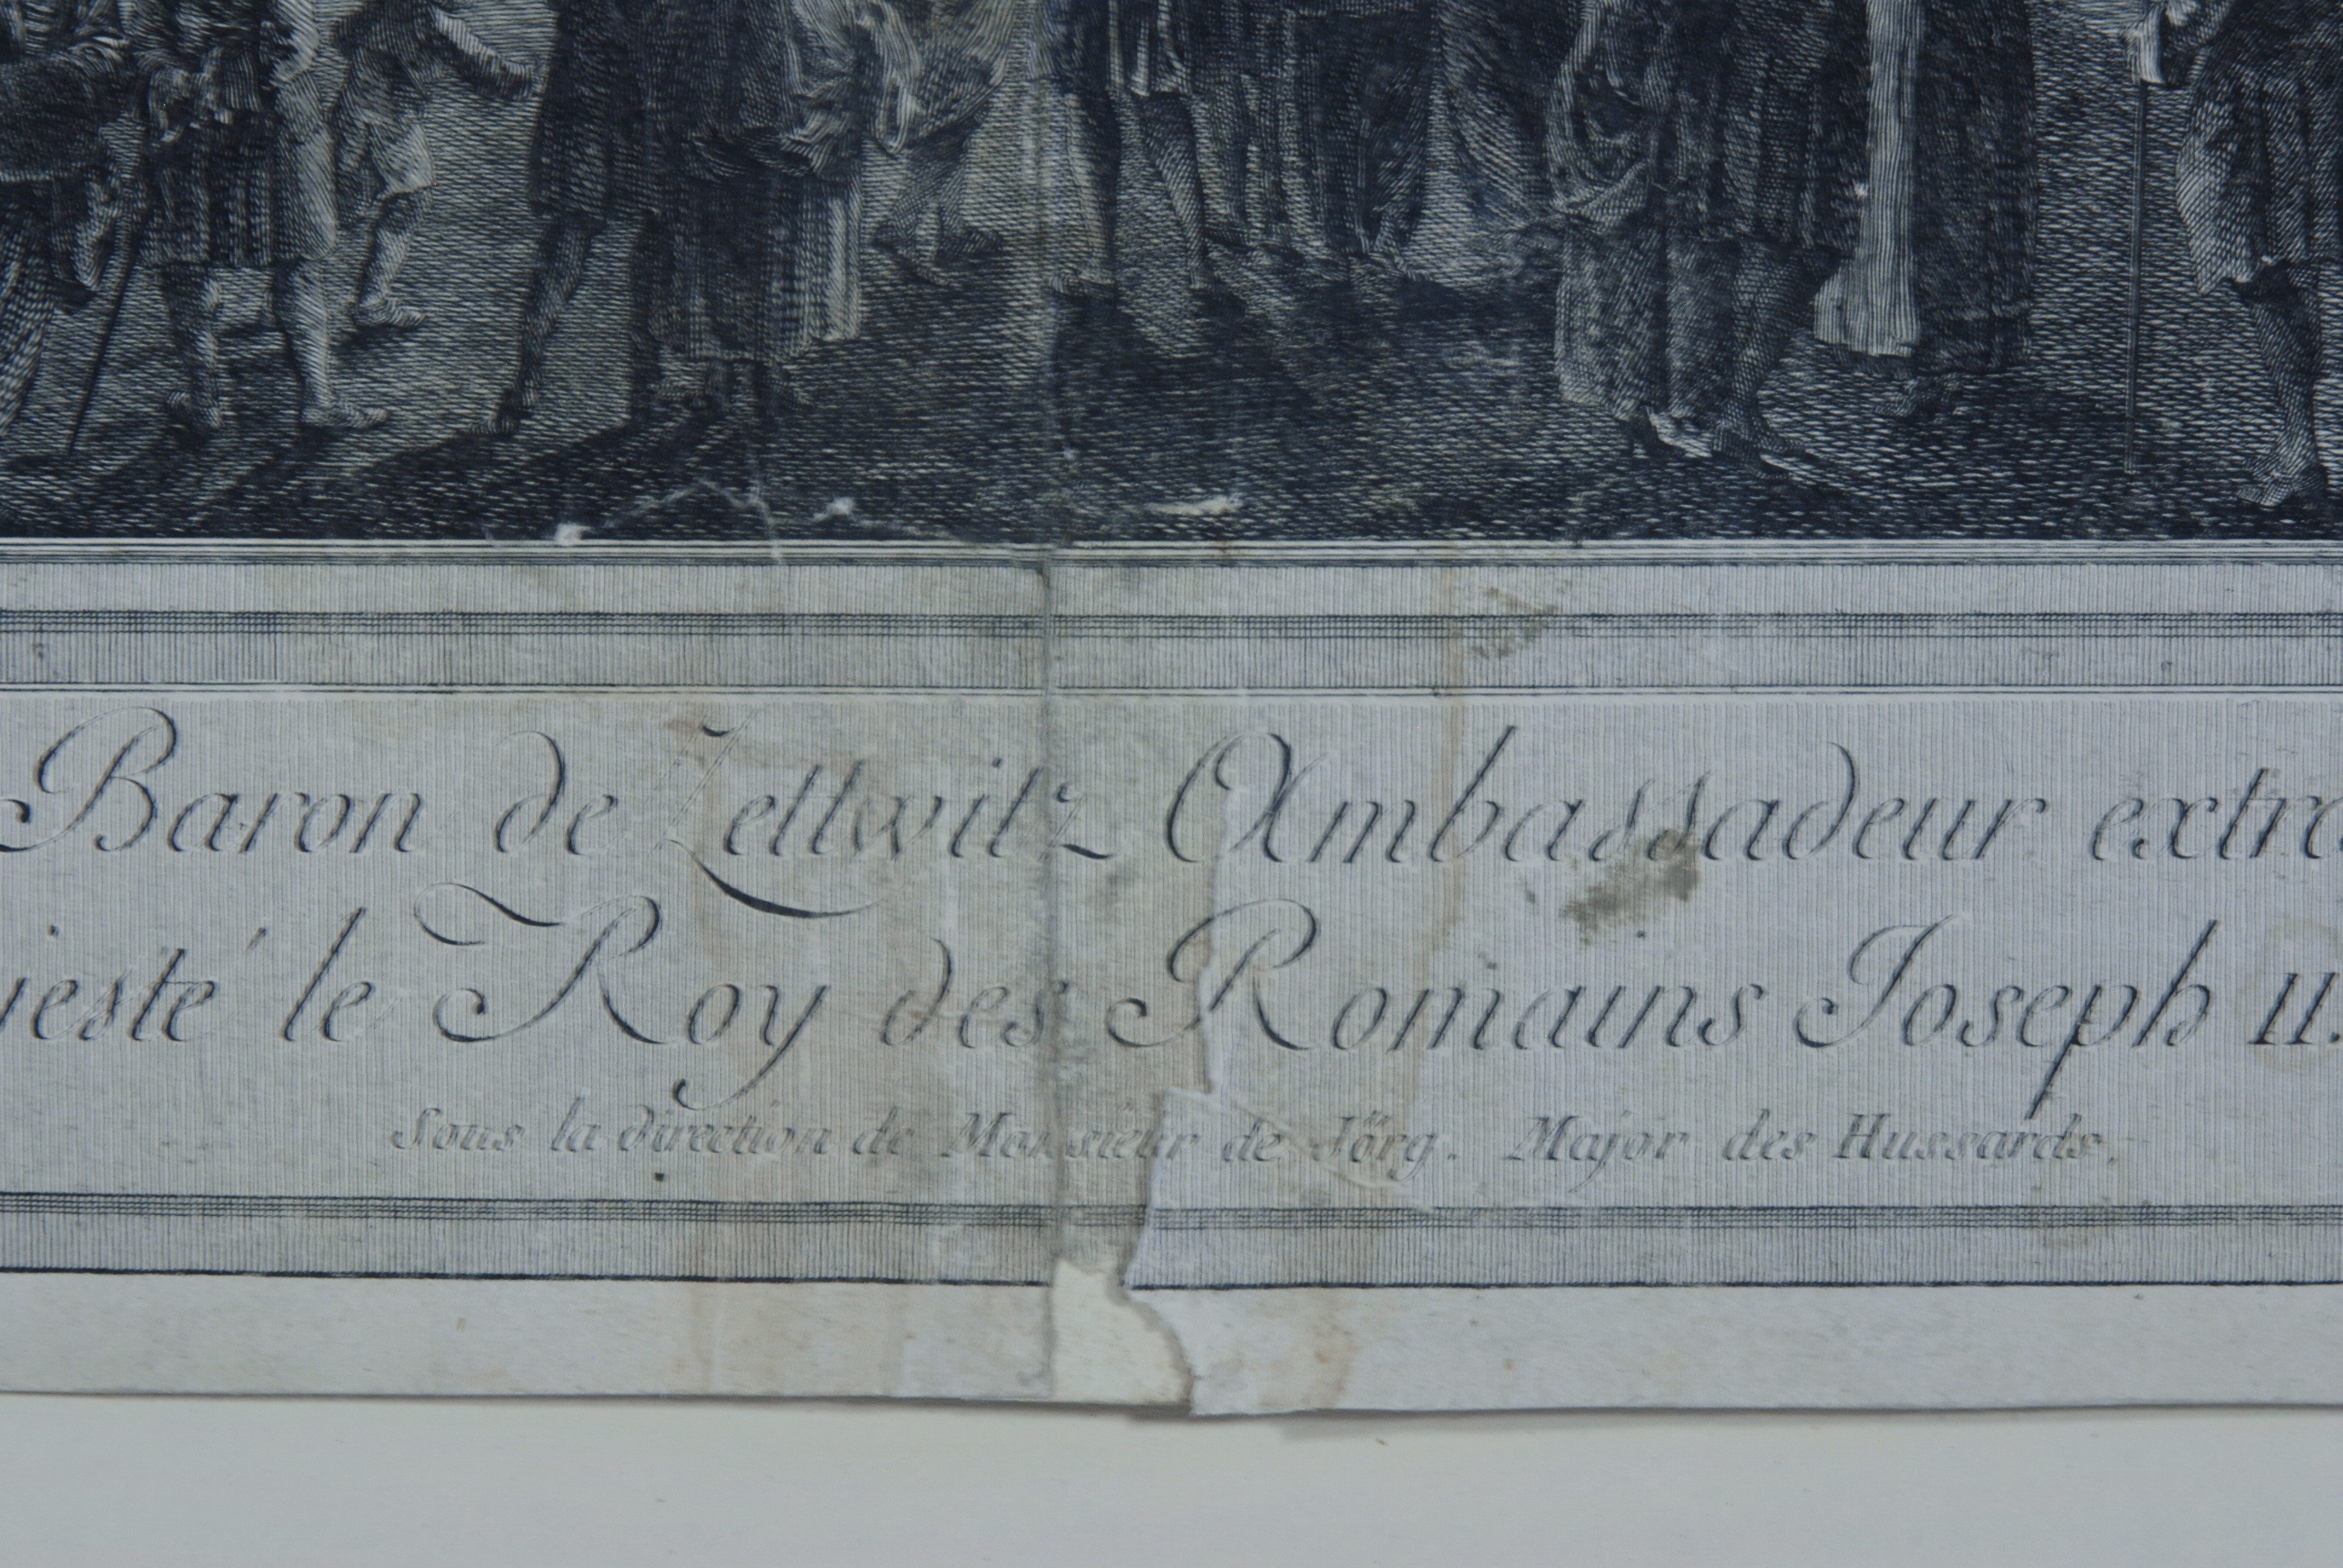 Baron de Zettwitz Ambassadeur extra
jesté le Roy des Romains Joseph II.
Sous la direction de Monsieur de Jörg. Major des Hussards.